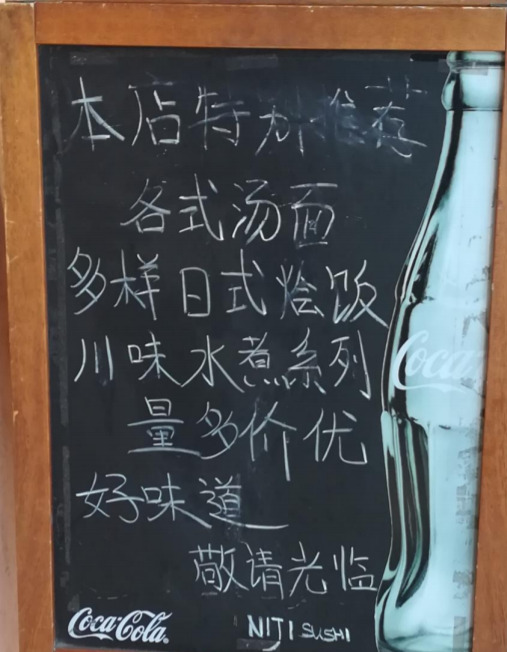 本店特别推荐
各式汤面
多样日式烩饭
川味水煮系列
量多价优
好味道
敬请光临
Coca-Cola
NIJI SUSHI
Coca